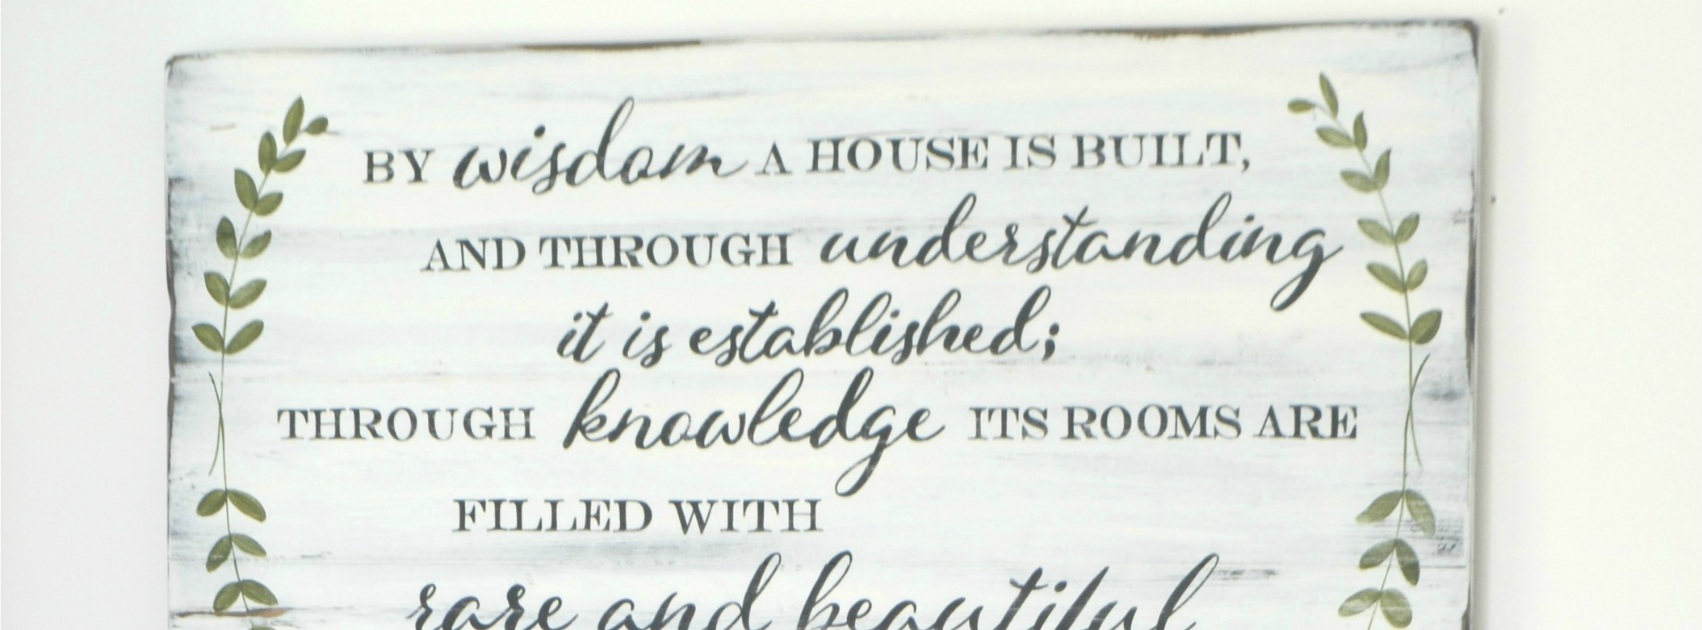 BY wisdom A HOUSE IS BUILT,
AND THROUGH understanding
it is established;
THROUGH knowledge ITS ROOMS ARE
FILLED WITH
rare and beautiful